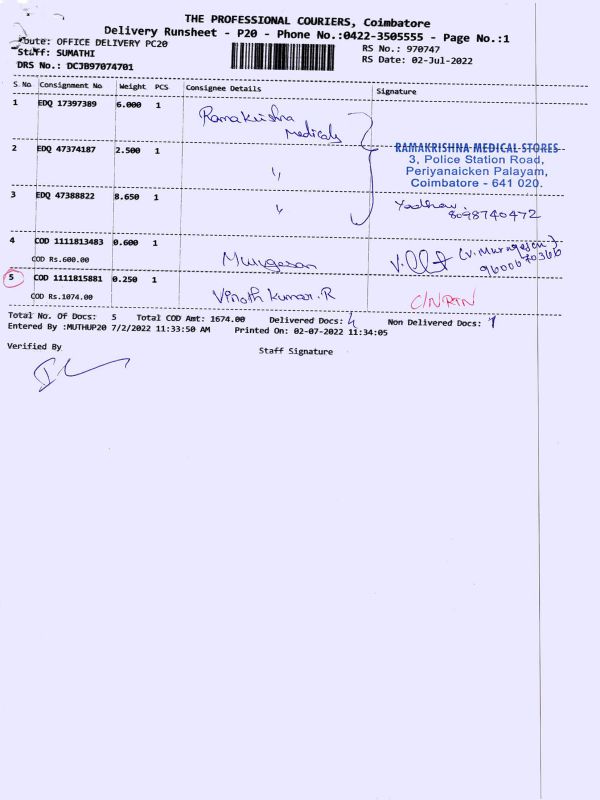 THE PROFESSIONAL COURIERS, Coimbatore
Delivery Runsheet - P20 - Phone No.:0422-3505555 - Page No.:1
Route: OFFICE DELIVERY PC20
RS No.: 970747
Staff: SUMATHI
RS Date: 02-Jul-2022
DRS No.: DCJB97074701
S No Consignment No Weight PCS Consignee Details Signature
1 EDQ 17397389 6.000 1 Ramakrishna
Medicals
2 EDQ 47374187 2.500 1 "
RAMAKRISHNA MEDICAL STORES
3, Police Station Road,
Periyanaicken Palayam,
Coimbatore - 641 020.
3 EDQ 47388822 8.650 1 "
8098740472
4 COD 1111813483 0.600 1 Murugesan (V.Murugesan)
COD Rs.600.00
9600670366
5 COD 1111815881 0.250 1 Vinoth Kumar.R C/N RTN
COD Rs.1074.00
Total No. Of Docs: 5 Total COD Amt: 1674.00 Delivered Docs: 4 Non Delivered Docs: 1
Entered By :MUTHUP20 7/2/2022 11:33:50 AM Printed On: 02-07-2022 11:34:05
Verified By
Staff Signature